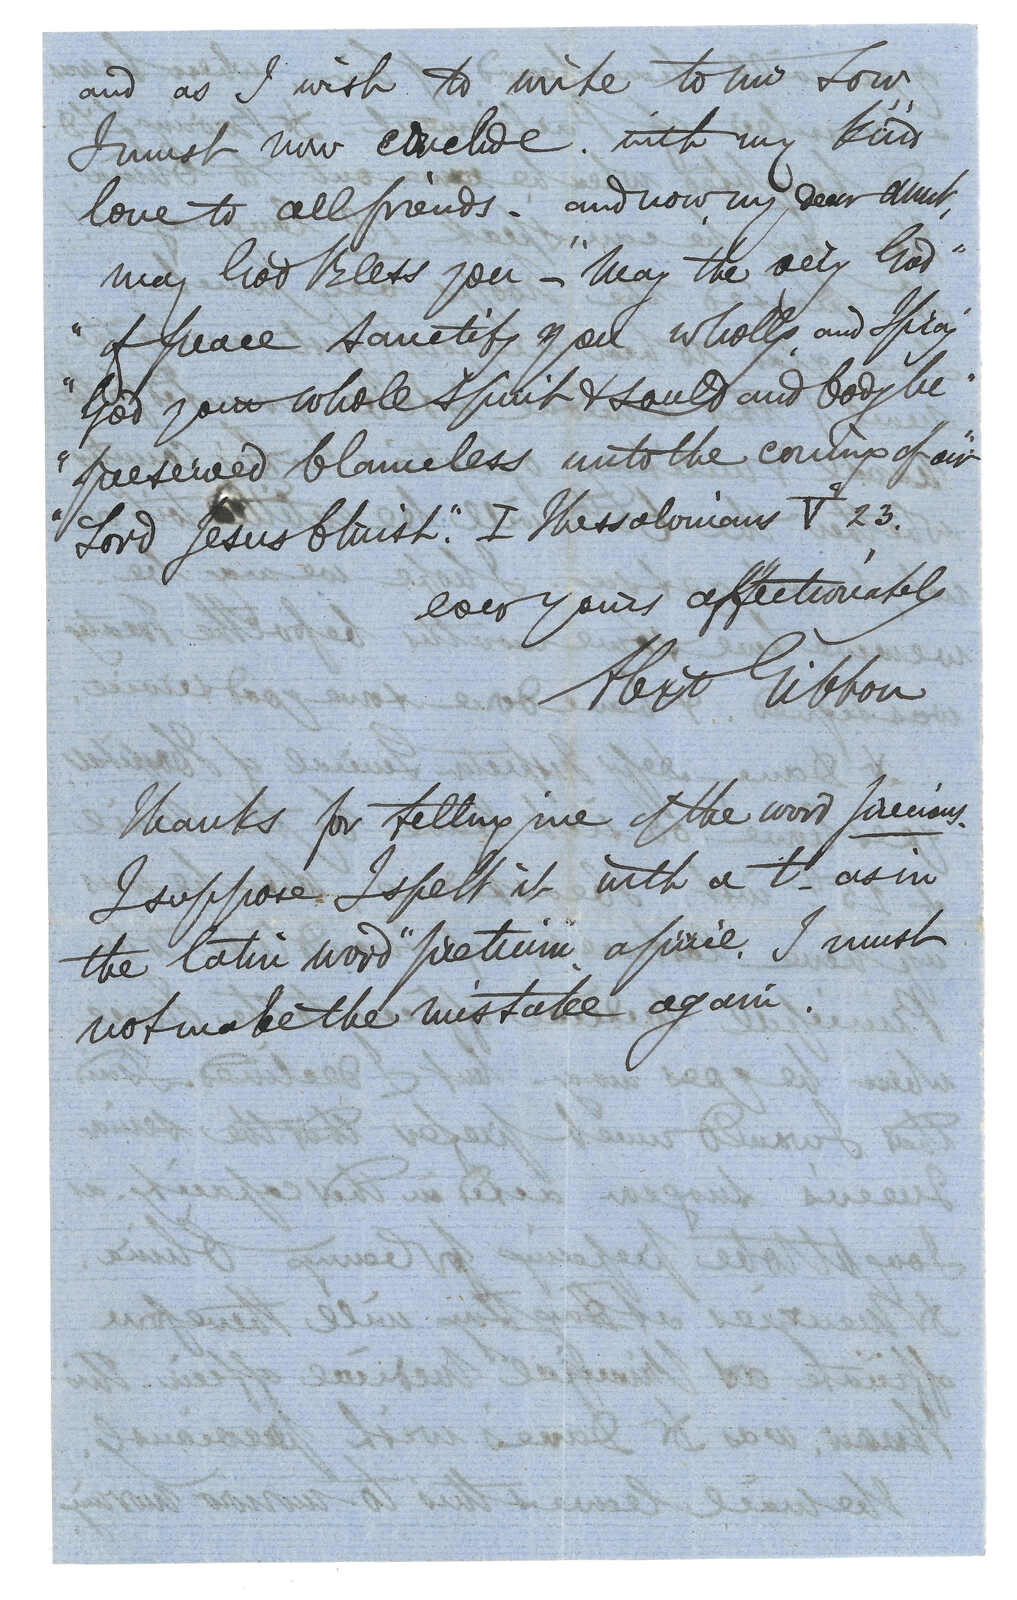 and as I wish to write to
I must now conclude. with my kind
love to all friends. and now my dear Aunt,
may God Bless you – "May the very God"
"of peace sanctify you wholly, and I pray
"God your whole spirit & sould and body be"
"preserved blameless unto the coming of our"
"Lord Jesus Christ." I Thessalonians V 23.
ever yours affectionately
Alexr Gibbon
Thanks for telling me of the word precious.
I suppose I spelt it with a t – as in
the latin word "pretium" a price. I must
not make the mistake again.